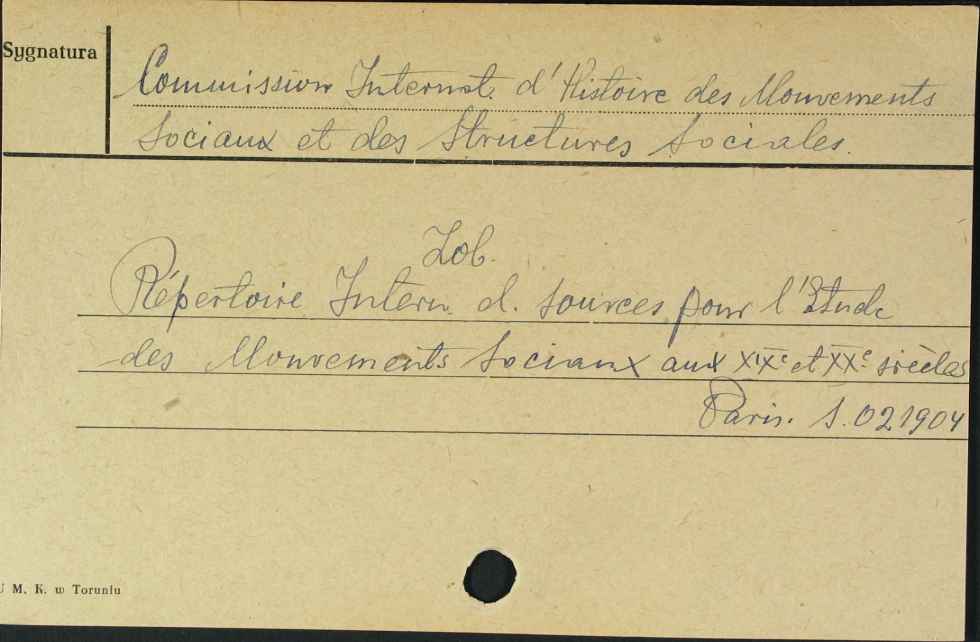 Sygnatura
Commission Internat. d'Histoire des Mouvements
Sociaux et des Structures Sociales.
Zob.
Répertoire Intern. d. sources pour l'Etude
des Mouvements Sociaux aux XIXe et XXe siècles
Paris. S. 021904
U M. K. w Toruniu